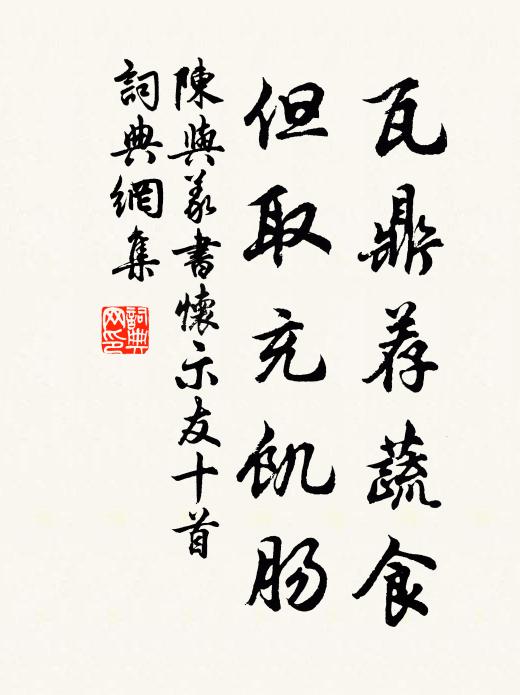 瓦鼎荐蔬食
但取充飢肠
陳與義書懷示友十首
詞典網集
詞典网印